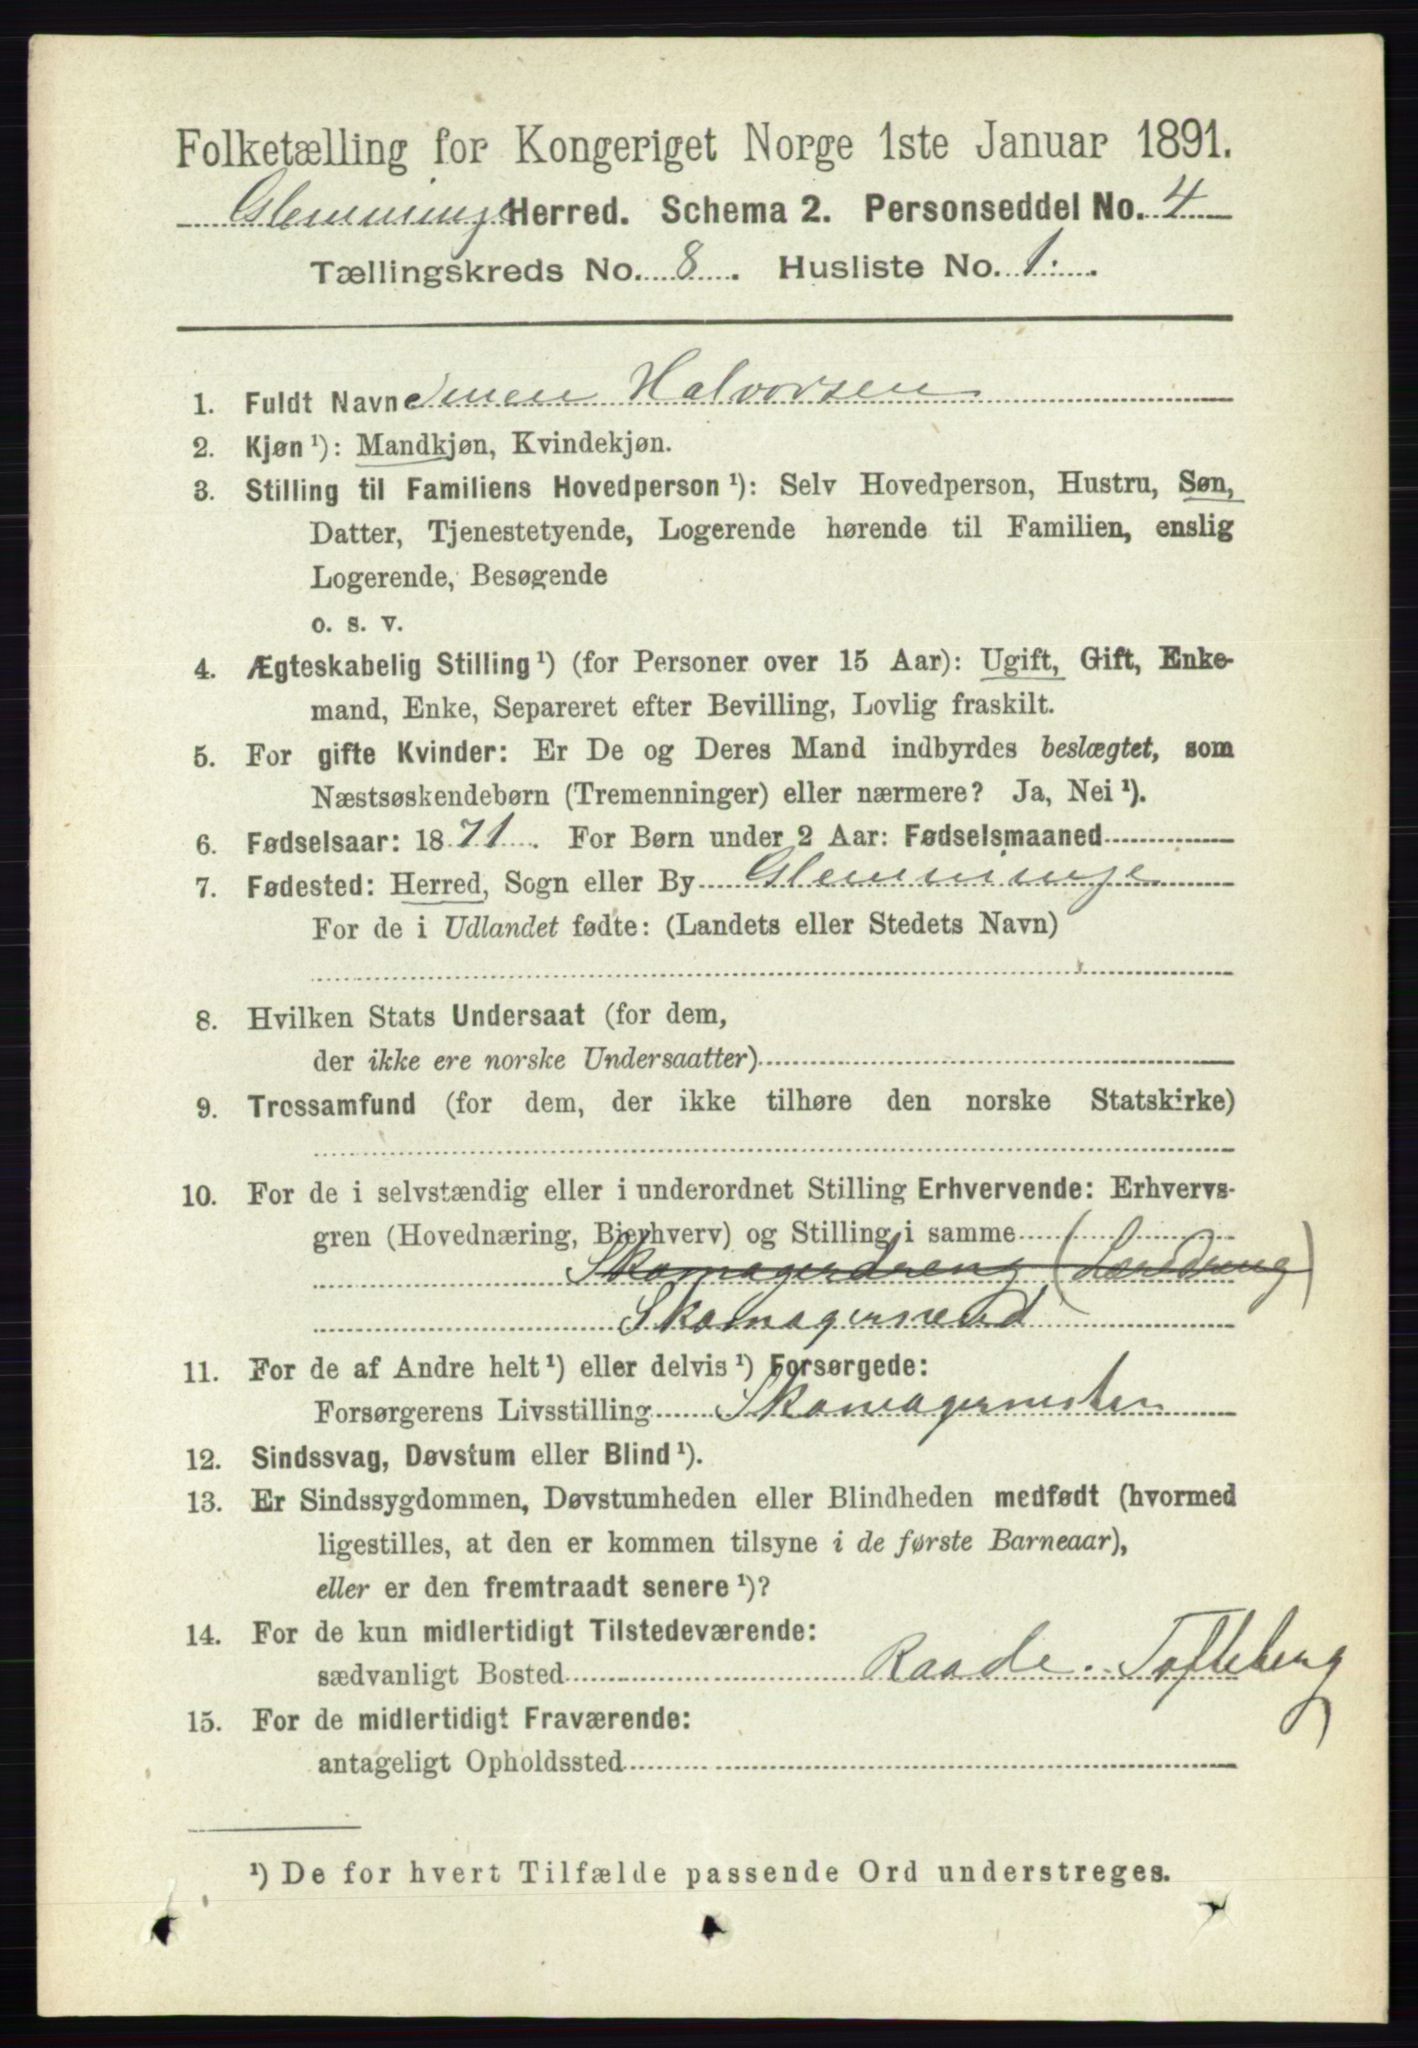 Folketælling for Kongeriget Norge 1ste Januar 1891.
Glemminge Herred. Schema 2. Personseddel No. 4
Tællingskreds No. 8. Husliste No. 1.
1. Fuldt Navn Halvorsen
2. Kjøn ¹): Mandkjøn, Kvindekjøn.
3. Stilling til Familiens Hovedperson ¹): Selv Hovedperson, Hustru, Søn,
Datter, Tjenestetyende, Logerende hørende til Familien, enslig
Logerende, Besøgende
o. s. v.
4. Ægteskabelig Stilling ¹) (for Personer over 15 Aar): Ugift, Gift, Enke-
mand, Enke, Separeret efter Bevilling, Lovlig fraskilt.
5. For gifte Kvinder: Er De og Deres Mand indbyrdes beslægtet, som
Næstsøskendebørn (Tremenninger) eller nærmere? Ja, Nei ¹).
6. Fødselsaar: 1871. For Børn under 2 Aar: Fødselsmaaned
7. Fødested: Herred, Sogn eller By Glemminge
For de i Udlandet fødte: (Landets eller Stedets Navn)
8. Hvilken Stats Undersaat (for dem,
der ikke ere norske Undersaatter)
9. Trossamfund (for dem, der ikke tilhøre den norske Statskirke)
10. For de i selvstændig eller i underordnet Stilling Erhvervende: Erhvervs-
gren (Hovednæring, Bierhverv) og Stilling i samme
Skomagerdreng (Læredreng)
Skomagersvend
11. For de af Andre helt ¹) eller delvis ¹) Forsørgede:
Forsørgerens Livsstilling Skomagermester
12. Sindssvag, Døvstum eller Blind ¹).
13. Er Sindssygdommen, Døvstumheden eller Blindheden medfødt (hvormed
ligestilles, at den er kommen tilsyne i de første Barneaar),
eller er den fremtraadt senere ¹)?
14. For de kun midlertidigt Tilstedeværende:
sædvanligt Bosted Raade. Tofteberg
15. For de midlertidigt Fraværende:
antageligt Opholdssted
¹) De for hvert Tilfælde passende Ord understreges.